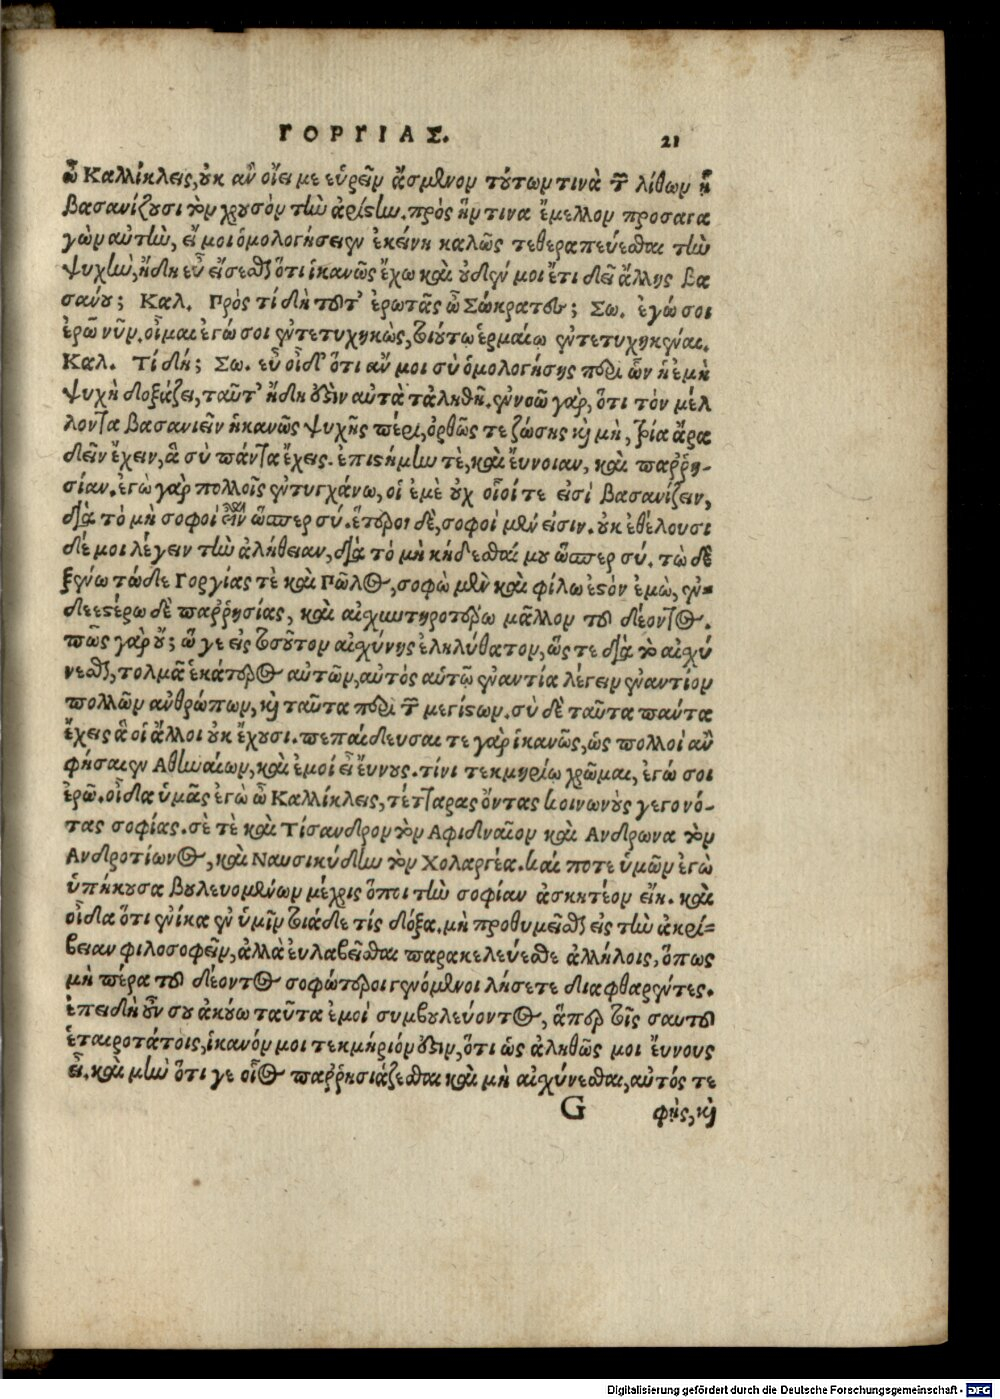 ΓΟΡΓΙΑΣ. 21
ὦ Καλλίκλεις, οὐκ ἂν οἴει με εὑρεῖν ἄσμενον τούτων τινὰ τῶν λίθων ᾗ
βασανίζουσι τὸν χρυσὸν τὴν ἀρίστην. πρὸς ἥντινα ἔμελλον προσαγα
γὼν αὐτὴν, εἴ μοι ὁμολογήσειεν ἐκείνη καλῶς τεθεραπεύεσθαι τὴν
ψυχὴν, ἤδη εὖ εἴσεσθαι ὅτι ἱκανῶς ἔχω καὶ οὐδέν μοι ἔτι δεῖ ἄλλης βα
σάνου; Καλ. Πρὸς τί δὴ τοῦτ' ἐρωτᾶς ὦ Σώκρατες; Σω. ἐγώ σοι
ἐρῶ νῦν. οἶμαι ἐγώ σοι ἐντετυχηκὼς, τοιούτῳ ἑρμαίῳ ἐντετυχηκέναι.
Καλ. Τί δή; Σω. εὖ οἶδ' ὅτι ἄν μοι σὺ ὁμολογήσῃς περὶ ὧν ἡ ἐμὴ
ψυχὴ δοξάζει, ταῦτ' ἤδη ἐστὶν αὐτὰ τἀληθῆ. ἐννοῶ γὰρ, ὅτι τὸν μέλ
λοντα βασανιεῖν ἡκανῶς ψυχῆς πέρι, ὀρθῶς τε ζώσης καὶ μὴ, τρία ἄρα
δεῖν ἔχειν, ἃ σὺ πάντα ἔχεις. ἐπιστήμην τὲ, καὶ ἔυνοιαν, καὶ παῤῥη-
σίαν. ἐγὼ γὰρ πολλοῖς ἐντυγχάνω, οἱ ἐμὲ οὐχ οἷοί τε εἰσὶ βασανίζειν,
διὰ τὸ μὴ σοφοὶ εἶναι ὥσπερ σύ. ἕτεροι δὲ, σοφοὶ μέν εἰσιν. οὐκ ἐθέλουσι
δέ μοι λέγειν τὴν ἀλήθειαν, διὰ τὸ μὴ κήδεσθαί μου ὥσπερ σύ. τὼ δὲ
ξένω τώδε Γοργίας τὲ καὶ Πῶλος, σοφὼ μὲν καὶ φίλω ἐστὸν ἐμὼ, ἐν=
δεεστέρω δὲ παῤῥησίας, καὶ αἰσχυντηροτέρω μᾶλλον τοῦ δέοντος.
πῶς γὰρ οὔ; ὥ γε εἰς τοσοῦτον αἰσχύνης ἐληλύθατον, ὥς τε διὰ τὸ αἰσχύ
νεσθαι, τολμᾶ ἑκάτερος αὐτῶν, αὐτὸς αὑτῷ ἐναντία λέγειν ἐναντίον
πολλῶν ἀνθρώπων, καὶ ταῦτα περὶ τῶν μεγίστων. σὺ δὲ ταῦτα πάντα
ἔχεις ἃ οἱ ἄλλοι οὐκ ἔχουσι. πεπαίδευσαι τε γὰρ ἱκανῶς, ὡς πολλοὶ ἂν
φήσαιεν Αθηναίων, καὶ ἐμοὶ εἶ ἔυνους. τίνι τεκμηρίῳ χρῶμαι, ἐγώ σοι
ἐρῶ. οἶδα ὑμᾶς ἐγὼ ὦ Καλλίκλεις, τέτταρας ὄντας κοινωνοὺς γεγονό-
τας σοφίας. σὲ τὲ καὶ Τίσανδρον τὸν Αφιδναῖον καὶ Ανδρωνα τὸν
Ανδροτίωνος, καὶ Ναυσικύδην τὸν Χολαργέα. καί ποτε ὑμῶν ἐγὼ
ὑπήκουσα βουλευομένων μέχρις ὅποι τὴν σοφίαν ἀσκητέον εἴη. καὶ
οἶδα ὅτι ἐνίκα ἐν ὑμῖν τοιάδε τίς δόξα. μὴ προθυμεῖσθαι εἰς τὴν ἀκρί=
βειαν φιλοσοφεῖν, ἀλλὰ ἐυλαβεῖσθαι παρακελεύεσθε ἀλλήλοις, ὅπως
μὴ πέρα τοῦ δέοντος σοφώτεροι γενόμενοι λήσετε διαφθαρέντες.
ἐπειδὴ οὖν σου ἀκούω ταῦτα ἐμοὶ συμβουλεύοντος, ἅπερ τοῖς σαυτοῦ
ἑταιροτάτοις, ἱκανόν μοι τεκμήριόν ἐστιν, ὅτι ὡς ἀληθῶς μοι ἔυνους
εἶ. καὶ μὴν ὅτι γε οἷος παῤῥησιάζεσθαι καὶ μὴ αἰσχύνεσθαι, αὐτός τε
G φῂς, καὶ
Digitalisierung gefördert durch die Deutsche Forschungsgemeinschaft - DFG